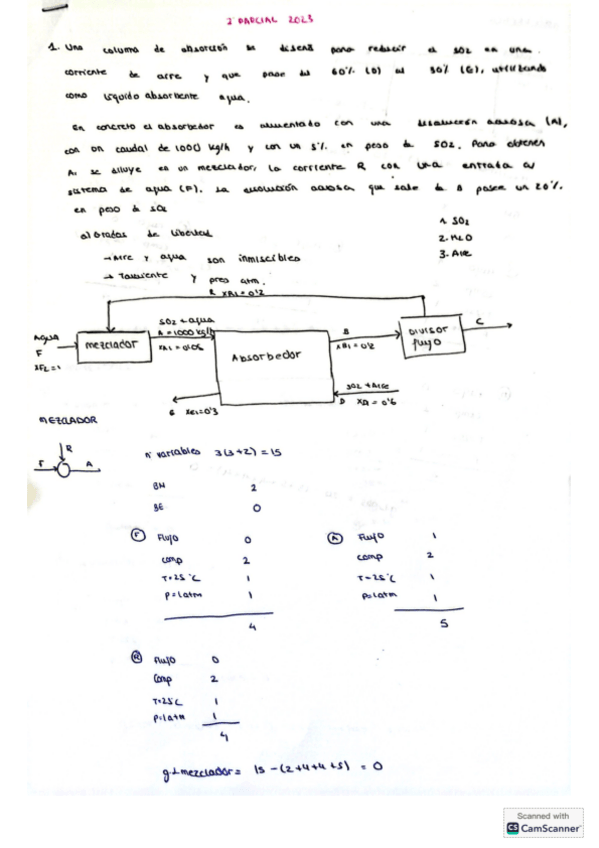 2º PARCIAL 2023
1. Una columna de absorción se diseñó para reducir el SO2 en una
corriente de aire y que pase del 60% (D) al 30% (G), utilizando
como líquido absorbente agua.
En concreto el absorbedor es alimentado con una disolución acuosa (A),
con un caudal de 1000 kg/h y con un 5% en peso de SO2. Para obtener
A, se diluye en un mezclador, la corriente R con una entrada al
sistema de agua (F). La disolución acuosa que sale de B posee un 20%
en peso de SO2
a) Grados de libertad
1. SO2
2. H2O
3. Aire
→ Aire y agua son inmiscibles
→ T ambiente y pres atm.
R XR1=0'2
Agua
F
XF2=1
mezclador
SO2 + agua
A = 1000 kg/h
XA1 = 0'05
Absorbedor
B
XB1 = 0'2
Divisor
flujo
C
G XG1=0'3
SO2 + Aire
D XD1 = 0'6
MEZCLADOR
R
F A
nº variables 3(3+2) = 15
BM 2
BE 0
F Flujo 0
comp 2
T=25ºC 1
P=1atm 1
4
A Flujo 1
comp 2
T=25ºC 1
P=1atm 1
5
R Flujo 0
Comp 2
T=25ºC 1
P=1atm 1
4
g.l mezclador = 15 - (2+4+4+5) = 0
Scanned with
CS CamScanner